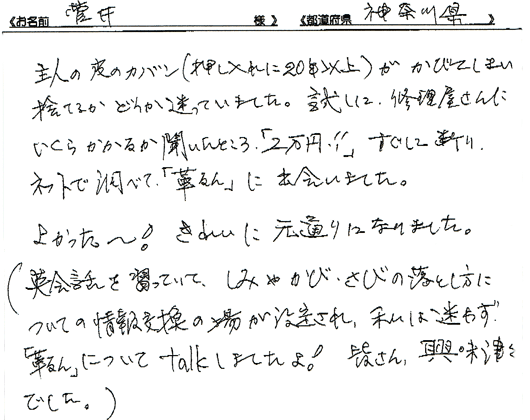 《お名前 菅井 様》 《都道府県 神奈川県 》
主人の皮のカバン(押し入れに20年以上)がかびてしまい
捨てるかどうか迷っていました。試しに、修理屋さんに
いくらかかるか聞いたところ、「2万円!!」すぐに断り、
ネットで調べて、「革るん」に出会いました。
よかった〜! きれいに元通りになりました。
(英会話を習っていて、しみやかび・さびの落とし方に
ついての情報交換の場が設定され、私は迷わず
「革るん」についてtalkしましたよ! 皆さん、興味津々
でした。)